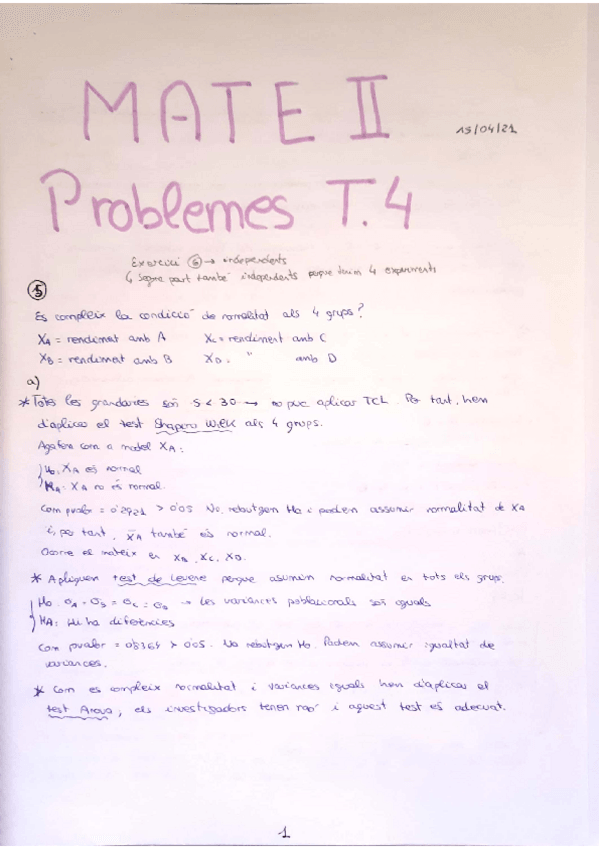 MATE II
15/04/21
Problemes T.4
Exercici ⑥ → independents
↳ Segona part també independents perque tenim 4 experiments
⑤
Es compleix la condició de normalitat als 4 grups?
XA = rendiment amb A XC = rendiment amb C
XB = rendiment amb B XD = " amb D
a)
* Totes les grandaries són 5 < 30 → no puc aplicar TCL. Per tant, hem
d'aplicar el test Shapiro Wilk als 4 grups.
Agafem com a model XA:
H0: XA és normal
HA: XA no és normal.
Com pvalor = 0'2921 > 0'05 No rebutgem H0 i podem assumir normalitat de XA
i, per tant, X̄A també és normal.
Ocorre el mateix en XB, XC, XD.
* Apliquem test de Levene perque assumim normalitat en tots els grups.
H0: σA = σB = σC = σD → Les variances poblacionals són iguals
HA: Hi ha diferències
Com pvalor = 0'8364 > 0'05. No rebutgem H0. Podem assumir igualtat de
variances.
* Com es compleix normalitat i variances iguals hem d'aplicar el
test Anova, els investigadors tenen raó i aquest test és adequat.
1